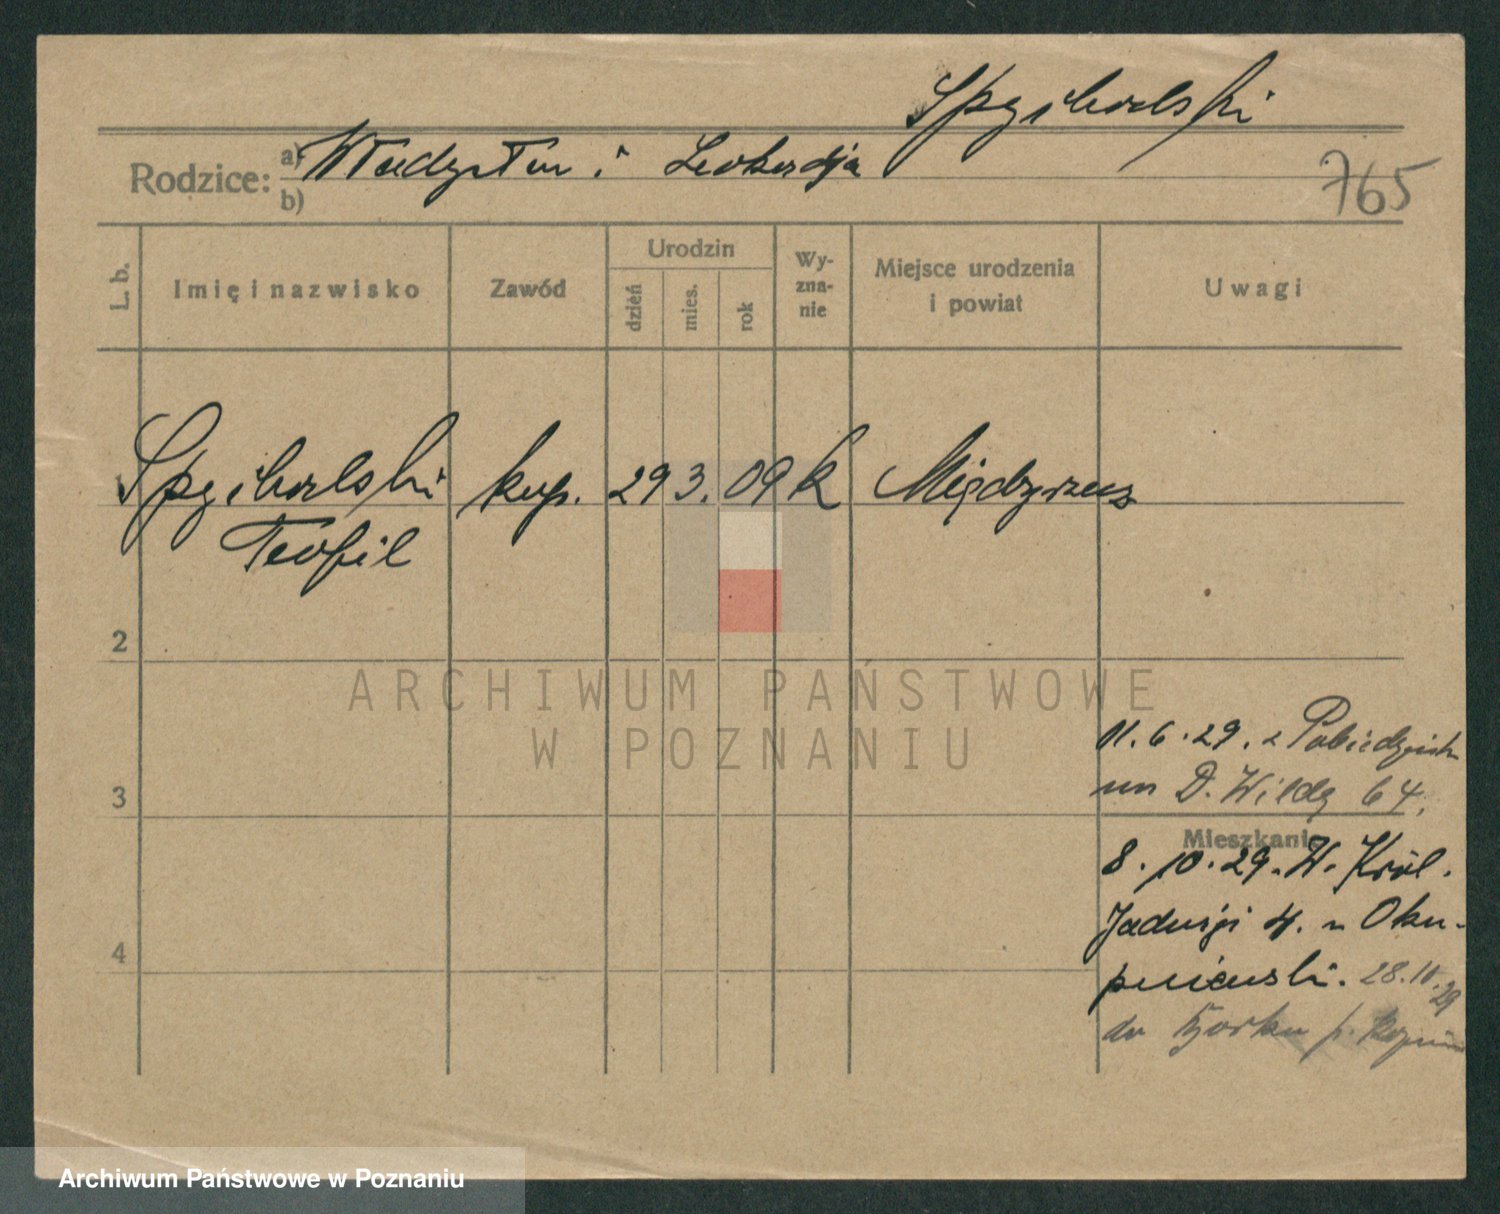 Spychalski
Rodzice: a) Władysław i Leokadja
b)
765
L. b.
Imię i nazwisko
Zawód
Urodzin
dzień
mies.
rok
Wy-
zna-
nie
Miejsce urodzenia
i powiat
Uwagi
Spychalski kup. 29 3. 09 k
Teofil
2
ARCHIWUM PAŃSTWOWE
W POZNANIU
11. 6. 29. z
D. Wilda 64.
3
Mieszkanie
8. 10. 29. W. Król.
Jadwigi 4.
4
28.10.29
do
Archiwum Państwowe w Poznaniu